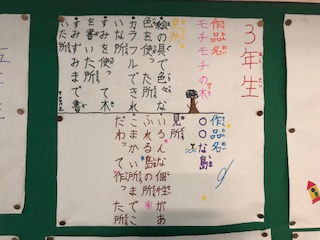 3年生
作品名
モチモチの木
見所
絵の具で色々な
色を使った所
カラフルできれ
いな所
すみを使って木
を書いた所
すみずみまで書
いた所
作品名
〇〇な島
見所
いろんな個性があ
ふれる島の所
こまかい所までこ
だわって作った所